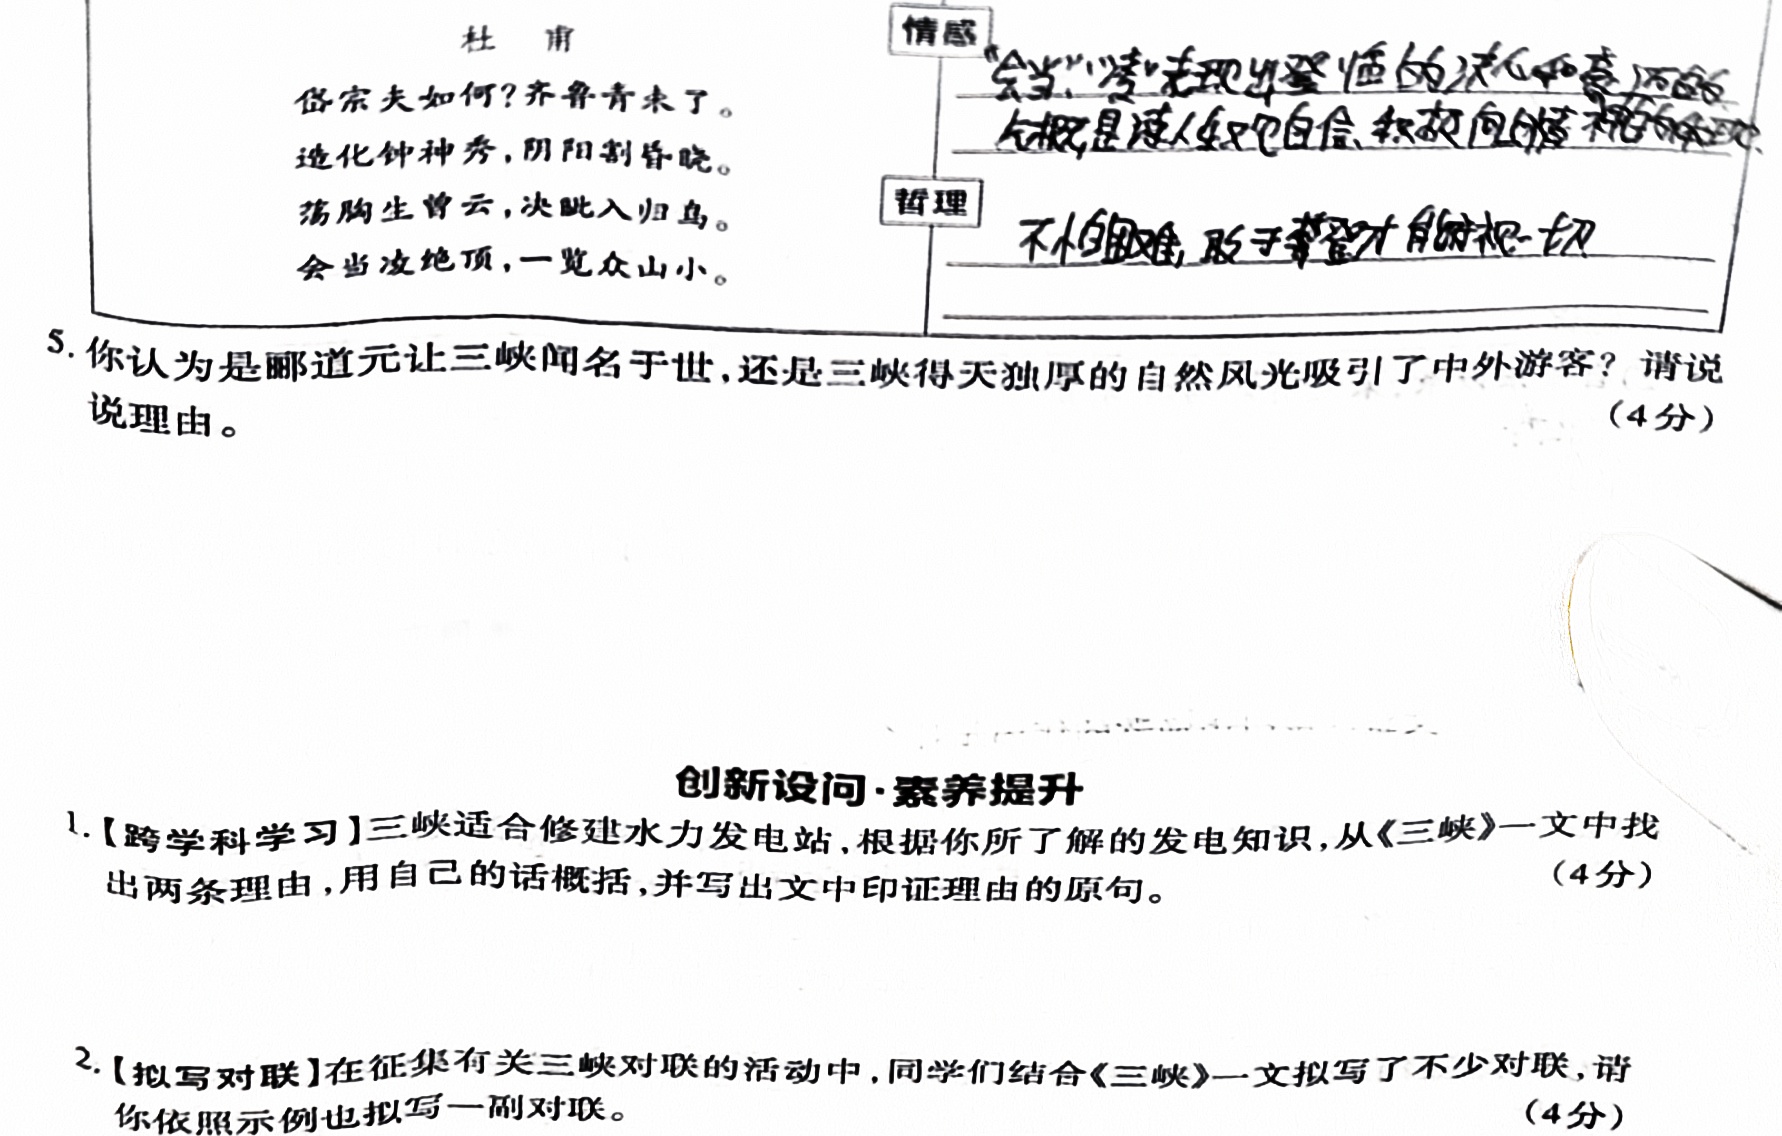 杜 甫
岱宗夫如何?齐鲁青未了。
造化钟神秀,阴阳割昏晓。
荡胸生曾云,决眦入归鸟。
会当凌绝顶,一览众山小。
情感
"会当""凌"表现出登临的决心和
气概,是诗人自信、积极向
哲理
不怕困难,敢于攀登才能俯视一切
5.你认为是郦道元让三峡闻名于世,还是三峡得天独厚的自然风光吸引了中外游客?请说
说理由。 (4分)
创新设问·素养提升
1.【跨学科学习】三峡适合修建水力发电站,根据你所了解的发电知识,从《三峡》一文中找
出两条理由,用自己的话概括,并写出文中印证理由的原句。 (4分)
2.【拟写对联】在征集有关三峡对联的活动中,同学们结合《三峡》一文拟写了不少对联,请
你依照示例也拟写一副对联。 (4分)